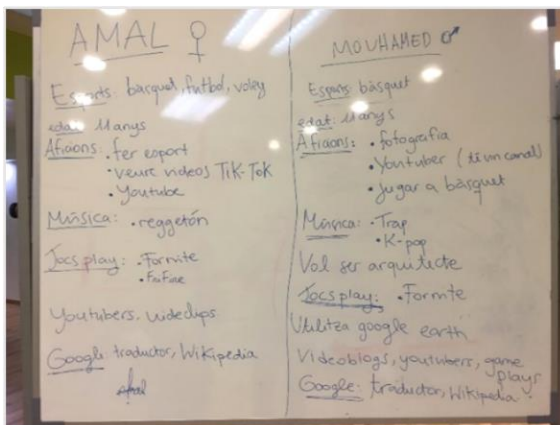 AMAL ♀
Esports: bàsquet, futbol, voley
edat: 11 anys
Aficions: • fer esport
• veure videos TiK-ToK
• Youtube
Música: • reggetón
Jocs play: • Fornite
Youtubers, videclips
Google: traductor, Wikipedia
MOUHAMED ♂
Esports: bàsquet
edat: 11 anys
Aficions: • fotografia
• Youtuber (té un canal)
• Jugar a bàsquet
Música: • Trap
• K-pop
Vol ser arquitecte
Jocs play: • Fornite
Utilitza google earth
Videoblogs, youtubers, game
plays
Google: traductor, Wikipedia